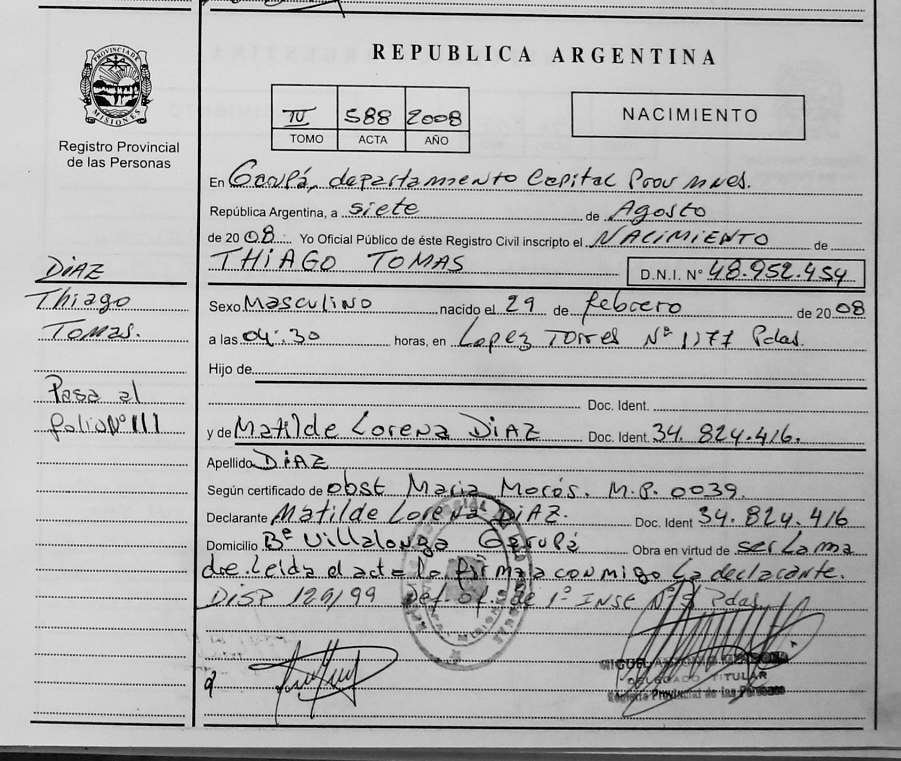 REPUBLICA ARGENTINA
PROVINCIA DE MISIONES
Registro Provincial
de las Personas
IV 588 2008
TOMO ACTA AÑO
NACIMIENTO
En Garupá, departamento Capital Prov mnes.
República Argentina, a siete de Agosto
de 2008. Yo Oficial Público de éste Registro Civil inscripto el NACIMIENTO de
THIAGO TOMAS D.N.I. Nº 48.952.454
DiAZ
Thiago
Tomas.
Pasa al
folio Nº 111
Sexo Masculino nacido el 29 de febrero de 2008
a las 04:30 horas, en Lopez Torres Nº 1177 Pdas.
Hijo de
Doc. Ident.
y de Matilde Lorena DiAZ Doc. Ident. 34.824.416.
Apellido DiAZ
Según certificado de obst Maria Morós. M.P. 0039.
Declarante Matilde Lorena DiAZ. Doc. Ident 34.824.416
Domicilio Bº Villalonga Garupá Obra en virtud de ser la ma
dre. Leida el acta la firma conmigo la declarante.
DiSP 129/99 Def. Of. de 1º INST Nº 3 Pdas.
DELEGADO TITULAR
Registro Provincial de las Personas